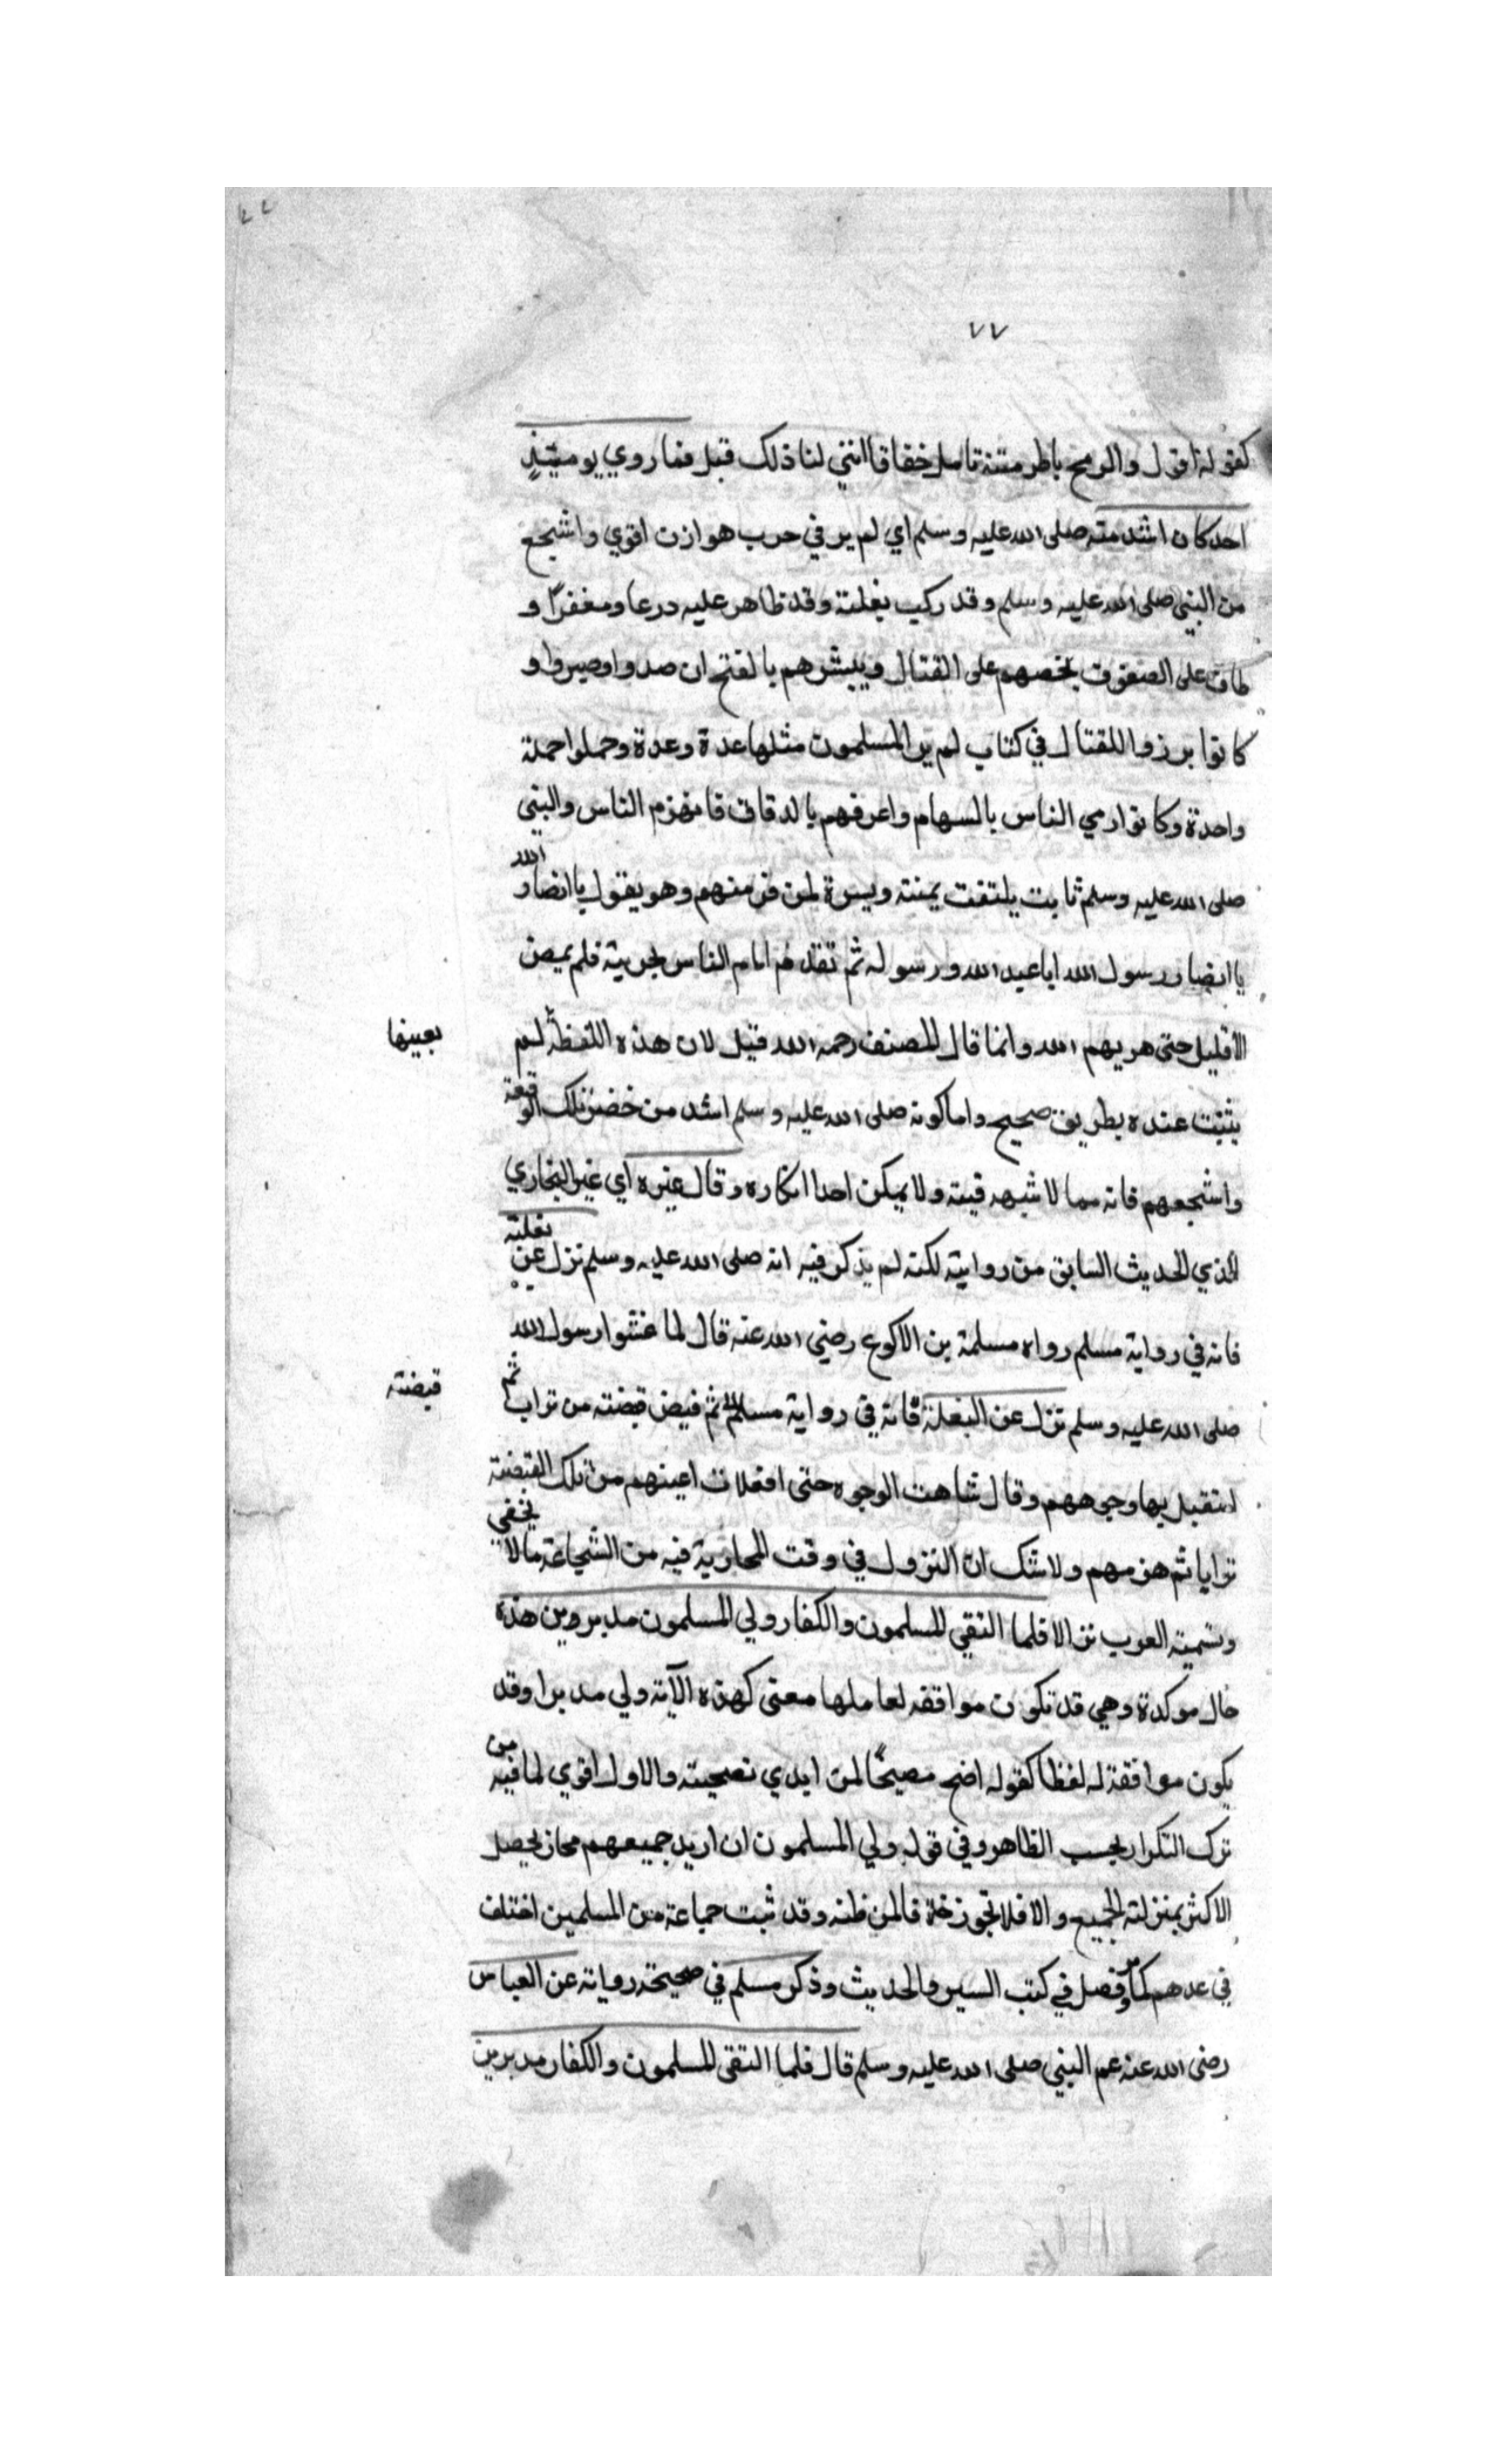 ٧٧
كقوله اقول والرمح باطر متنه تامل خفاقا انني لنا ذلك قبل فما روي يومئيذٍ
احد كان اشد منه صلى الله عليه وسلم اي لم ير في حرب هوازن اقوي واشجع
من النبي صلى الله عليه وسلم وقد ركب بغلته وقد ظاهر عليه درعا ومغفرًا و
طاف على الصفوف يحضهم على القتال ويبشرهم بالفتح ان صدوا وصبروا و
كانوا برزوا للقتال في كتاب لم ير المسلمون مثلها عدة وعدة وحملوا حملة
واحدة وكانوا رمي الناس بالسهام واعرفهم بالدقاق فانهزم الناس والنبي
صلى الله عليه وسلم ثابت يلتفت يمنته ويسرة لمن فر منهم وهو يقول يا انصار الله
يا انصار رسول الله انا عبد الله ورسوله ثم تقدم امام الناس بحربته فلم يمض
الا قليل حتى هزيهم الله وانما قال المصنف رحمه الله قيل لان هذه اللفظة لم
بعينها
يثبت عنده بطريق صحيح واما كونه صلى الله عليه وسلم اشد من حضر تلك الوقيعة
واشجعهم فانه مما لا شبهه فيته ولا يمكن احدا انكاره وقال غيره اي غير البخاري
الذي الحديث السابق من روايته لكنه لم يذكر فيه انه صلى الله عليه وسلم نزل عن بغلته
فانه في رواية مسلم رواه مسلمة بن الاكوع رضي الله عنه قال لما غشوا رسول الله
صلى الله عليه وسلم نزل عن البغلة فانه في رواية مسلم ثم قبض قبضته من تراب ثم
قبضته
استقبل بها وجوههم وقال شاهت الوجوه حتى امتلات اعينهم من تلك القبضته
ترابا ثم هزمهم ولا شك ان النزول في وقت المحاربة فيه من الشجاعة ما لا يخفي
وتسميته العرب نزالا فلما التقي المسلمون والكفار ولي المسلمون مدبروين هذه
حال موكدة وهي قد تكون موافقه لعاملها معنى كهذه الآية ولي مدبرا وقد
يكون موافقة له لفظا كقوله اضح مصيحًا لمن ابدي نصحيته والاول اقوي لما فيه من
ترك التكرار بحسب الظاهر وفي قوله ولي المسلمون ان اريد جميعهم مجاز يحصل
الاكثر بمنزلته الجميع والا فلا تجوز خلافا لمن ظنه وقد ثبت جماعة من المسلمين اختلف
في عدهم كما فصل في كتب السير والحديث وذكر مسلم في صحيحه رواية عن العباس
رضى الله عنه عم النبي صلى الله عليه وسلم قال فلما التقى المسلمون والكفار مدبرين